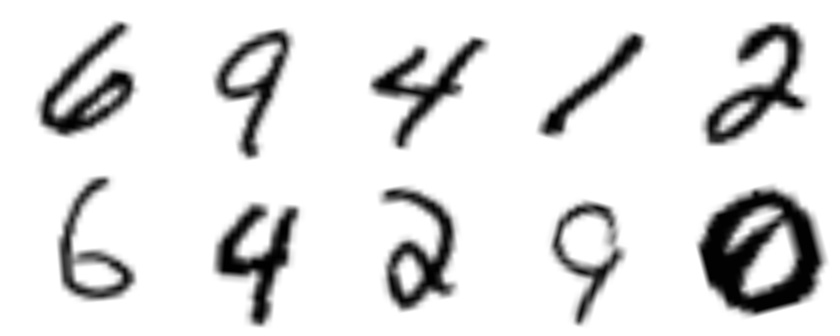 6 9 4 1 2
6 4 2 9 0